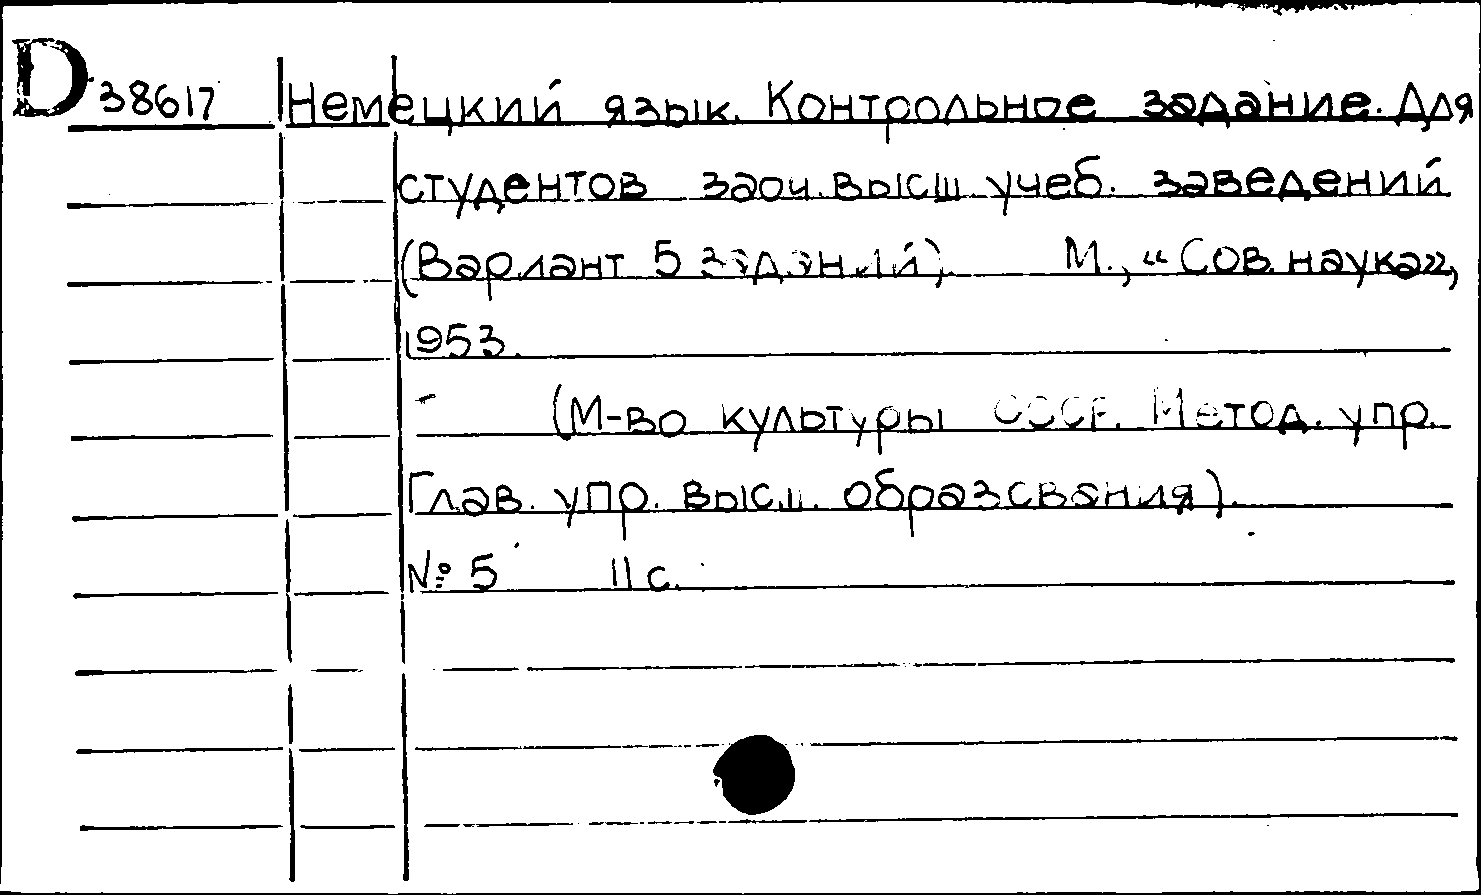 D 38617 Немецкий язык. Контрольное задание. Для
студентов заоч. высш. учеб. заведений
(Вариант 5 заданий). М., «Сов. наука»,
1953.
(М-во культуры СССР. Метод. упр.
Глав. упр. высш. образования).
№ 5 11 с.